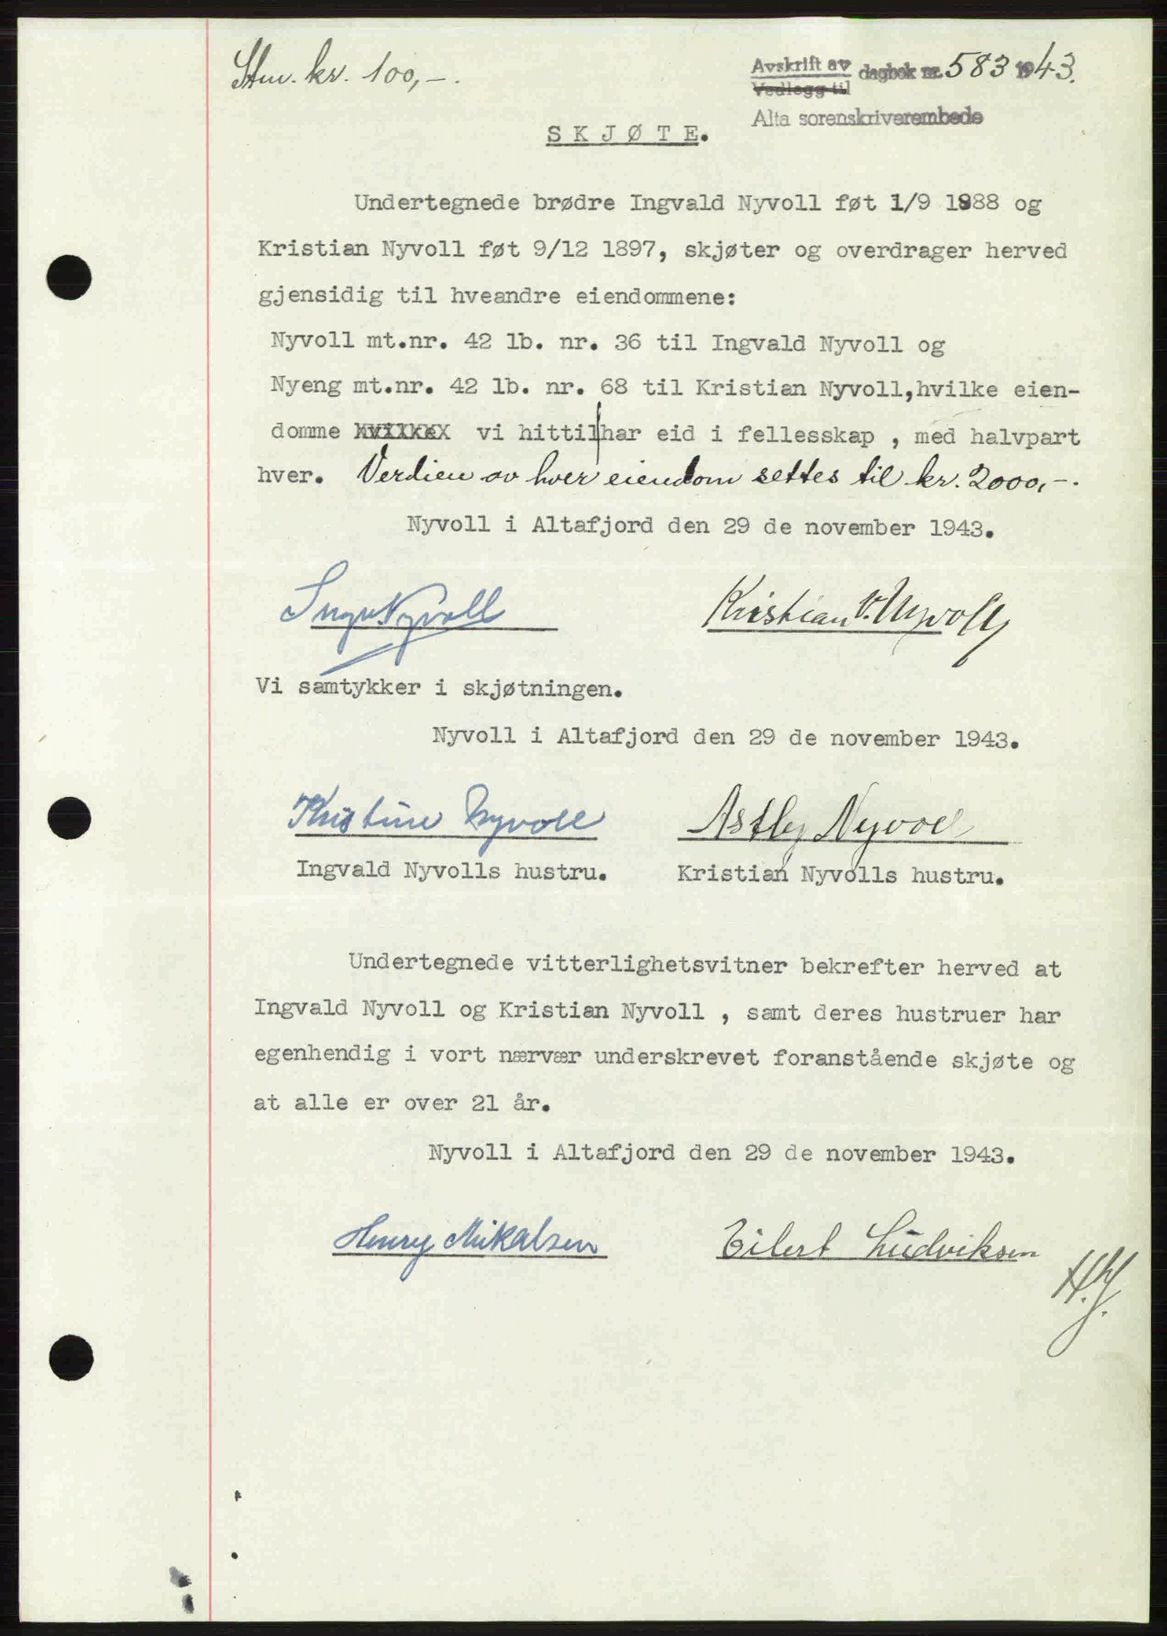 Stm. kr. 100,-.
Avskrift av
Vedlegg til
dagbok nr. 583 1943.
Alta sorenskriverembede
SKJØTE.
Undertegnede brødre Ingvald Nyvoll føt 1/9 1888 og
Kristian Nyvoll føt 9/12 1897, skjøter og overdrager herved
gjensidig til hveandre eiendommene:
Nyvoll mt.nr. 42 lb. nr. 36 til Ingvald Nyvoll og
Nyeng mt.nr. 42 lb. nr. 68 til Kristian Nyvoll,hvilke eien-
domme vi hittil har eid i fellesskap , med halvpart
hver. Verdien av hver eiendom settes til kr. 2000,-.
Nyvoll i Altafjord den 29 de november 1943.
Ingv. Nyvoll
Kristian V. Nyvoll
Vi samtykker i skjøtningen.
Nyvoll i Altafjord den 29 de november 1943.
Kristine Nyvoll
Astby Nyvoll
Ingvald Nyvolls hustru.
Kristian Nyvolls hustru.
Undertegnede vitterlighetsvitner bekrefter herved at
Ingvald Nyvoll og Kristian Nyvoll , samt deres hustruer har
egenhendig i vort nærvær underskrevet foranstående skjøte og
at alle er over 21 år.
Nyvoll i Altafjord den 29 de november 1943.
Henry Mikalsen
Eilert Ludviksen
H.J.